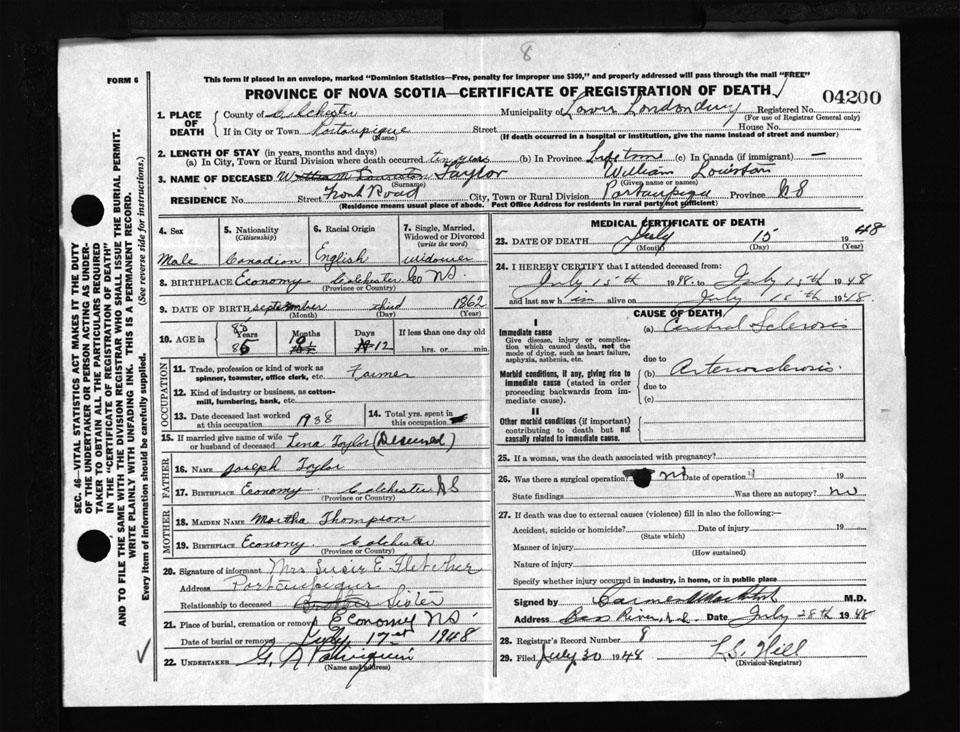 8
This form if placed in an envelope, marked "Dominion Statistics—Free, penalty for improper use $300," and properly addressed will pass through the mail "FREE"
FORM 6
PROVINCE OF NOVA SCOTIA—CERTIFICATE OF REGISTRATION OF DEATH
04200
1. PLACE OF DEATH
County of Colchester Municipality of Lower Londonderry Registered No.
(For use of Registrar General only)
If in City or Town Portaupique Street House No.
(Name) (If death occurred in a hospital or institution, give the name instead of street and number)
2. LENGTH OF STAY (in years, months and days)
(a) In City, Town or Rural Division where death occurred ten years (b) In Province Lifetime (c) In Canada (if immigrant) —
3. NAME OF DECEASED Taylor William Lowiston
(Surname) (Given name or names)
RESIDENCE No. Street Front Road City, Town or Rural Division Portaupique Province N S
(Residence means usual place of abode. Post Office Address for residents in rural parts not sufficient)
4. Sex
Male
5. Nationality
(Citizenship)
Canadian
6. Racial Origin
English
7. Single, Married, Widowed or Divorced
(write the word)
widower
8. BIRTHPLACE Economy Colchester Co NS.
(Province or Country)
9. DATE OF BIRTH September 1862
(Month) (Day) (Year)
10. AGE
85 Years
10 Months
Days 12
If less than one day old
hrs. or min.
OCCUPATION
11. Trade, profession or kind of work as spinner, teamster, office clerk, etc. Farmer
12. Kind of industry or business, as cotton-mill, lumbering, bank, etc.
13. Date deceased last worked at this occupation 1938
14. Total yrs. spent in this occupation
15. If married give name of wife or husband of deceased Lena Taylor (Deceased)
FATHER
16. NAME Joseph Taylor
17. BIRTHPLACE Economy Colchester N S
(Province or Country)
MOTHER
18. MAIDEN NAME Martha Thompson
19. BIRTHPLACE Economy. Colchester
(Province or Country)
20. Signature of informant Mrs Susie E. Fletcher
Address Portaupique
Relationship to deceased Sister
21. Place of burial, cremation or removal Economy NS
Date of burial or removal July 17 1948
22. UNDERTAKER
(Name and address)
MEDICAL CERTIFICATE OF DEATH
23. DATE OF DEATH July 15 1948
(Month) (Day) (Year)
24. I HEREBY CERTIFY that I attended deceased from:
July 15th 1948 to July 15th 1948
and last saw him alive on July 15th 1948.
CAUSE OF DEATH
I
Immediate cause
Give disease, injury or complication which caused death, not the mode of dying, such as heart failure, asphyxia, asthenia, etc.
(a) Cerebral Sclerosis
due to
Morbid conditions, if any, giving rise to immediate cause (stated in order proceeding backwards from immediate cause).
(b) Arteriosclerosis.
due to
(c)
II
Other morbid conditions (if important) contributing to death but not causally related to immediate cause.
25. If a woman, was the death associated with pregnancy?
26. Was there a surgical operation? No Date of operation 19
State findings Was there an autopsy? No
27. If death was due to external causes (violence) fill in also the following:—
Accident, suicide or homicide? Date of injury 19
(State which)
Manner of injury
(How sustained)
Nature of injury
Specify whether injury occurred in industry, in home, or in public place
Signed by M.D.
Address Bass River, N.S. Date July 28th 1948
28. Registrar's Record Number 8
29. Filed July 30 1948 L S. Hill
(Division Registrar)
SEC. 46—VITAL STATISTICS ACT MAKES IT THE DUTY
OF THE UNDERTAKER OR PERSON ACTING AS UNDER-
TAKER TO OBTAIN ALL THE PARTICULARS REQUIRED
IN THE "CERTIFICATE OF REGISTRATION OF DEATH"
AND TO FILE THE SAME WITH THE DIVISION REGISTRAR WHO SHALL ISSUE THE BURIAL PERMIT.
WRITE PLAINLY WITH UNFADING INK. THIS IS A PERMANENT RECORD.
Every item of information should be carefully supplied. (See reverse side for instructions.)